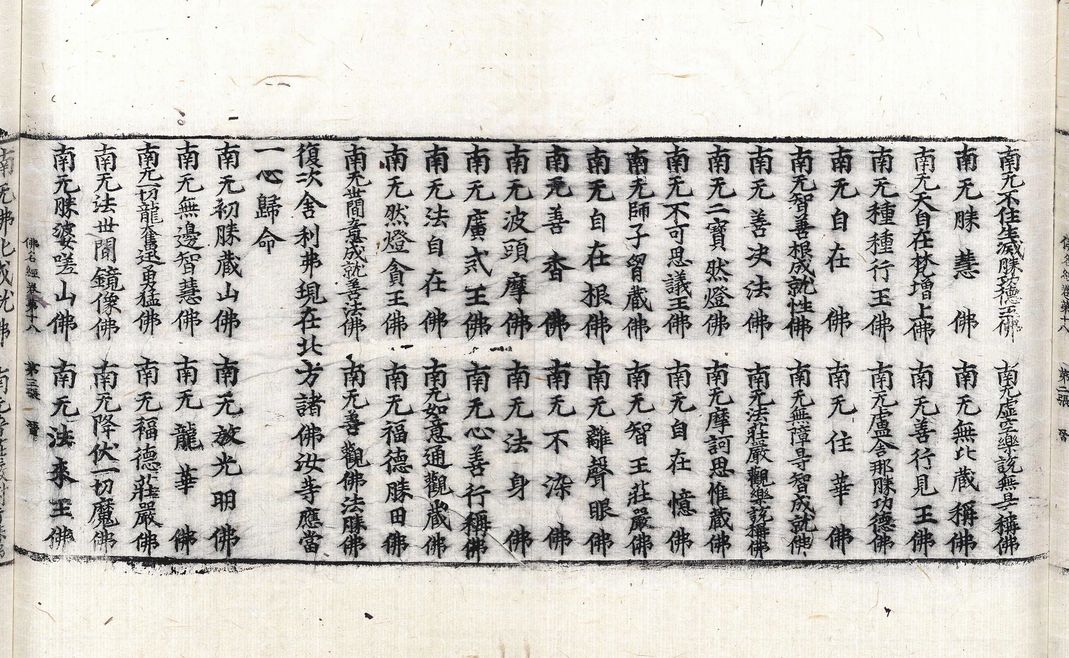 南无不住生滅勝功德王佛 南无虛空樂說無㝵稱佛
南无勝慧佛 南无無比藏稱佛
南无天自在梵增上佛 南无善行見王佛
南无種種行王佛 南无盧舍那勝功德佛
南无自在佛 南无住華佛
南无智善根成就性佛 南无無障㝵智成就佛
南无善決法佛 南无法莊嚴觀樂說稱佛
南无二寶然燈佛 南无摩訶思惟藏佛
南无不可思議王佛 南无自在憶佛
南无師子𦚾藏佛 南无智王莊嚴佛
南无自在根佛 南无離聲眼佛
南无善香佛 南无不染佛
南无波頭摩佛 南无法身佛
南无廣弍王佛 南无心善行稱佛
南无法自在佛 南无如意通觀藏佛
南无然燈貪王佛 南无福德勝田佛
南无世間意成就善法佛 南无善觀佛法勝佛
復次舍利弗現在北方諸佛汝等應當
一心歸命
南无初勝藏山佛 南无放光明佛
南无無邊智慧佛 南无龍華佛
南无一切龍奮迅勇猛佛 南无福德莊嚴佛
南无法世間鏡像佛 南无降伏一切魔佛
南无勝婆嗟山佛 南无法來王佛
佛名經卷第十八 第三張